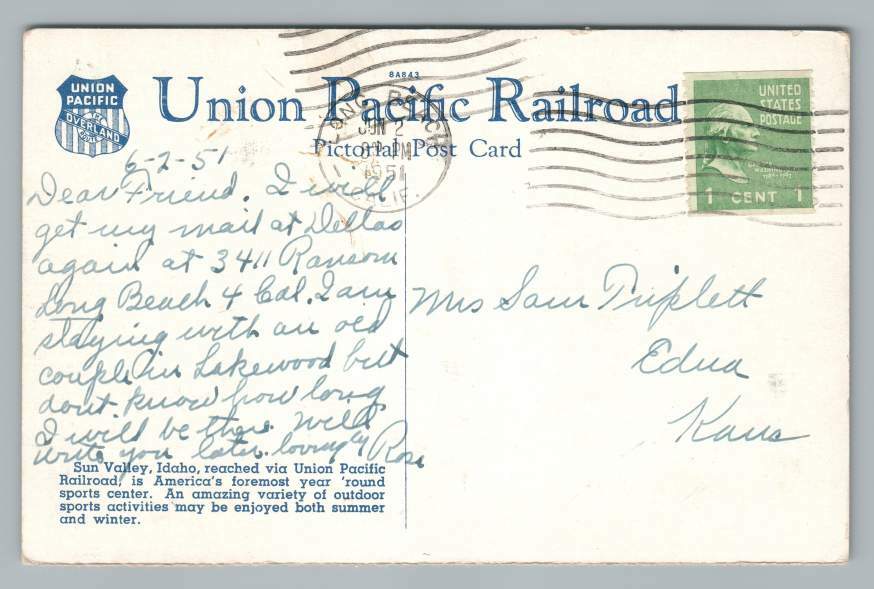 8A843
UNION
PACIFIC
THE
OVERLAND
ROUTE
Union Pacific Railroad
Pictorial Post Card
LONG BEACH
JUN 2
PM
1951
CALIF.
UNITED
STATES
POSTAGE
1 CENT 1
6-2-51
Dear Friend. I will
get my mail at Dellas
again at 3411 Ransom
Long Beach 4 Cal. I am
staying with an old
couple in Lakewood but
dont know how long
I will be there. Will
write you later. lovingly Rose
Mrs Sam Triplett
Edna
Kans
Sun Valley, Idaho, reached via Union Pacific
Railroad, is America's foremost year 'round
sports center. An amazing variety of outdoor
sports activities may be enjoyed both summer
and winter.